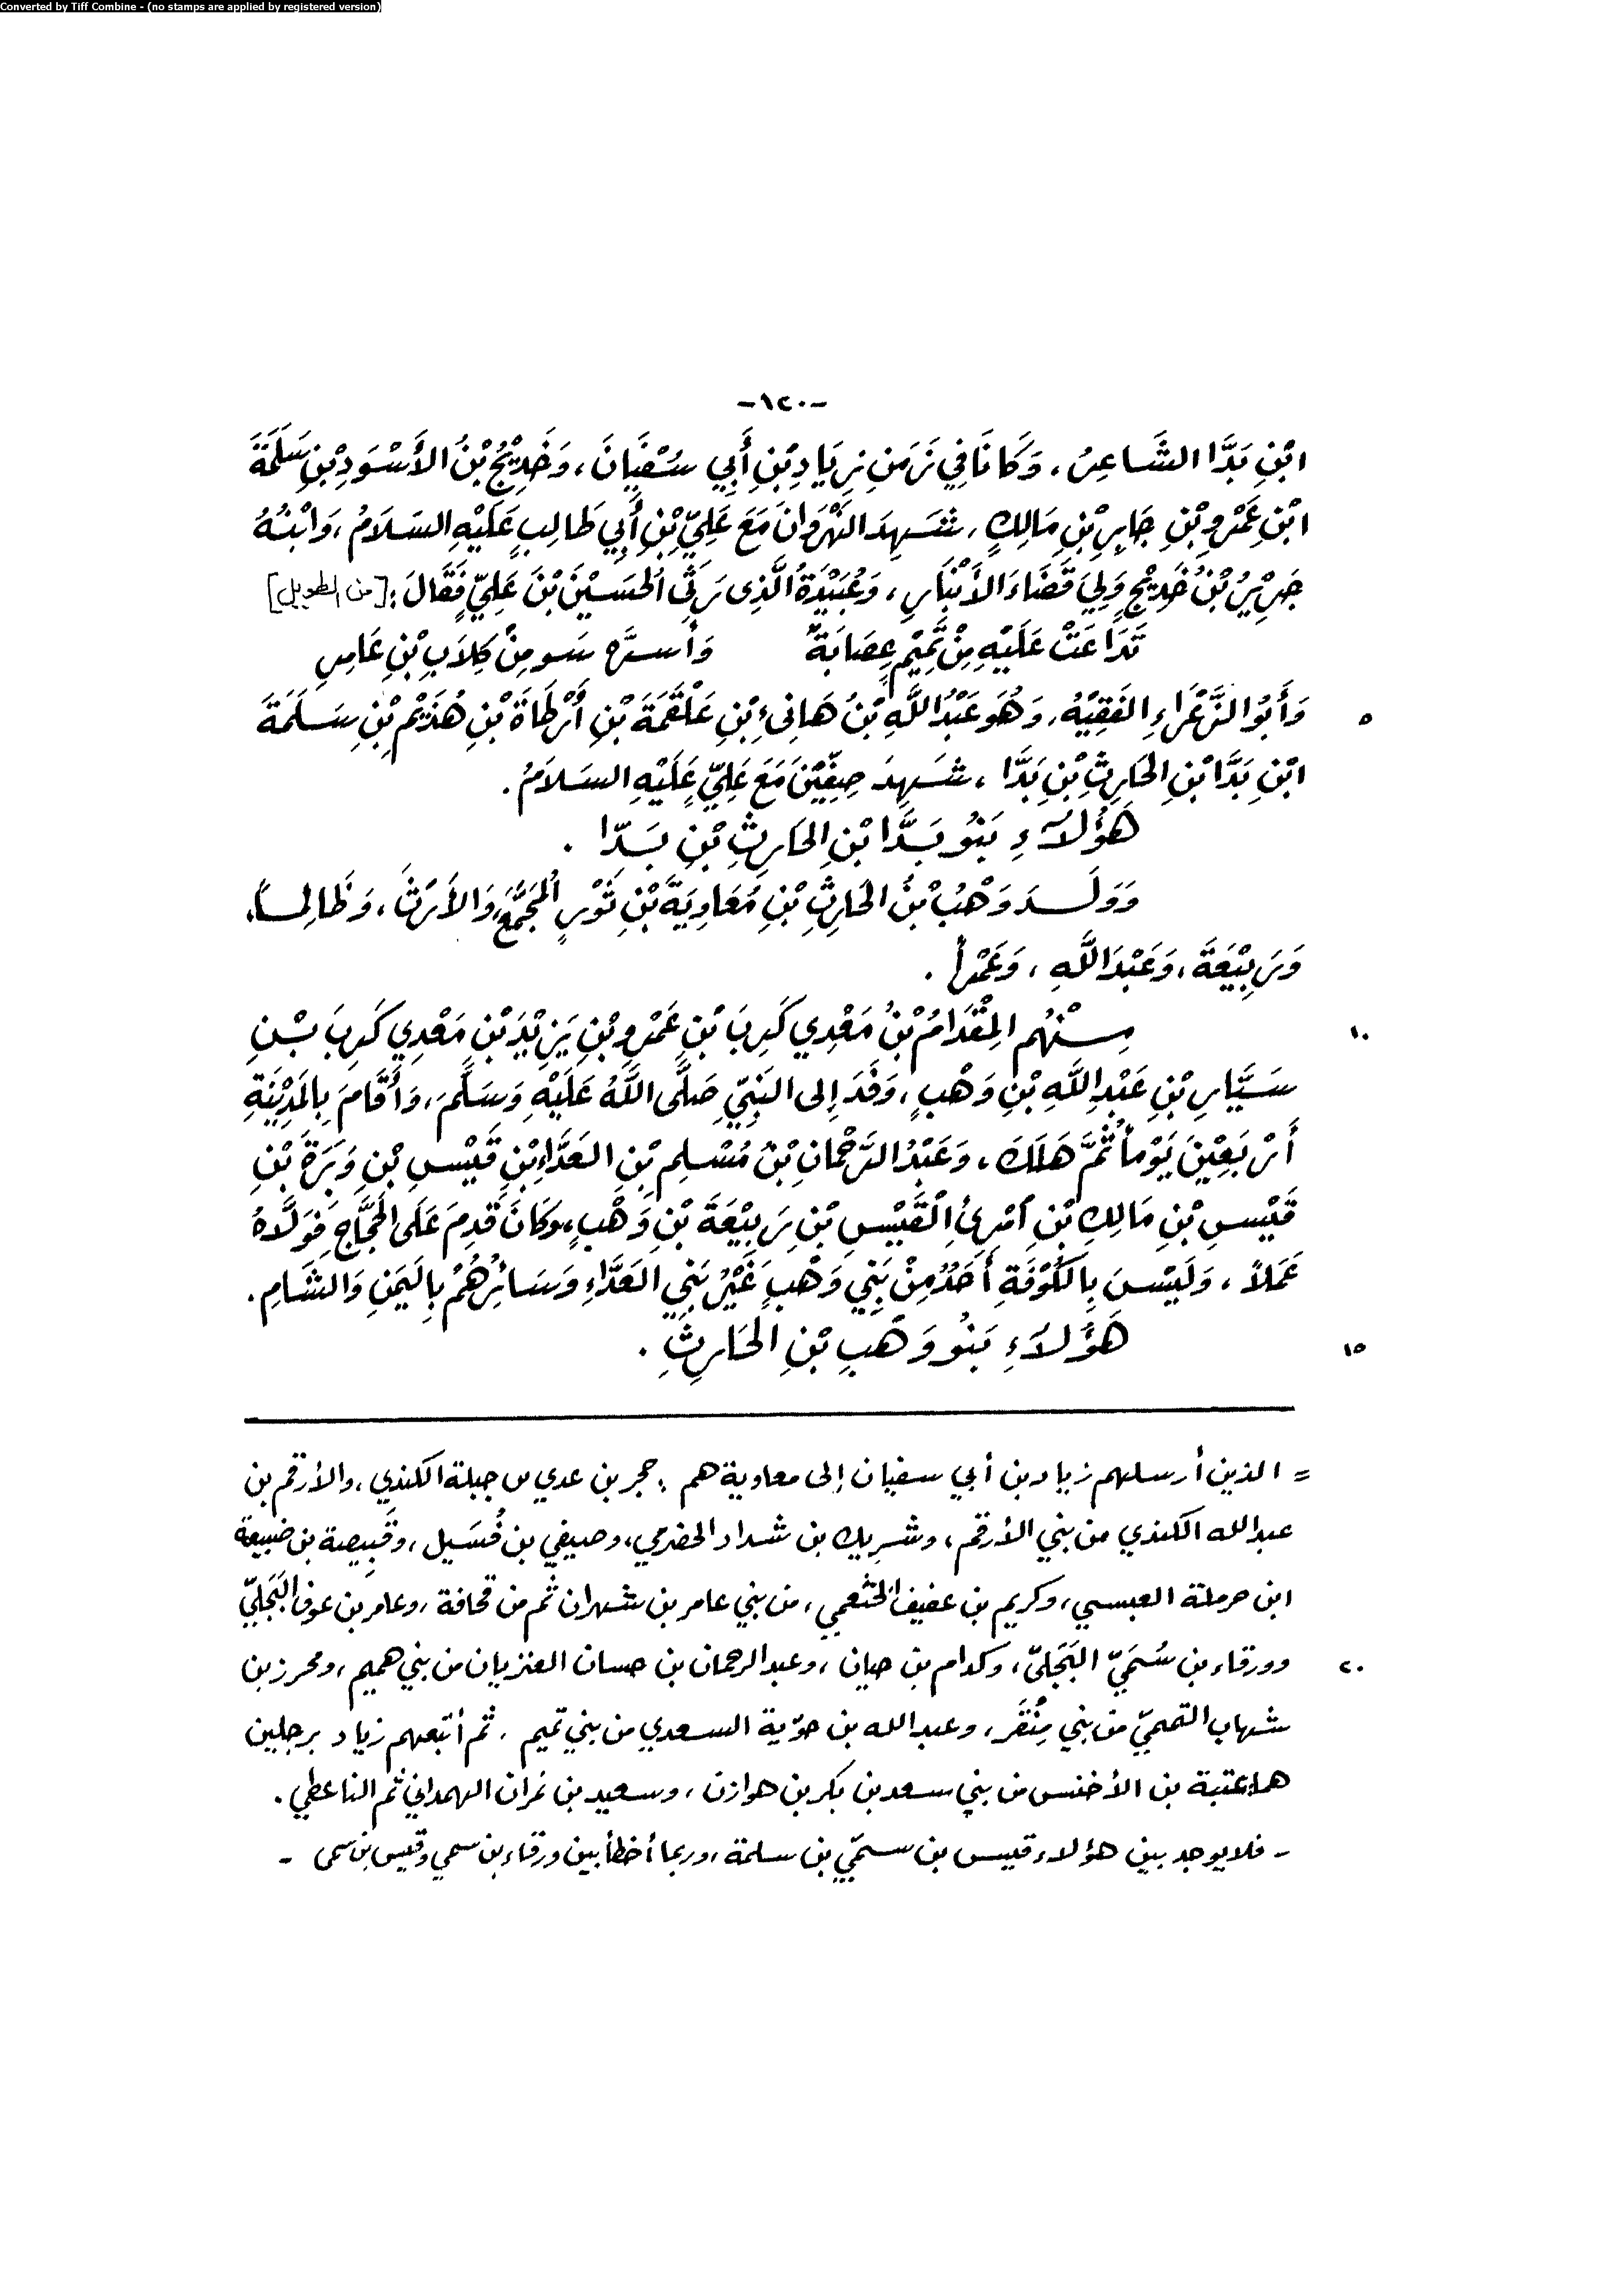 Converted by Tiff Combine - (no stamps are applied by registered version)
-١٢٠-
ابْنِ بَدَّا الشَّاعِرُ، وَكَانَا فِي زَمَنِ زِيَادِ بْنِ أَبِي سُفْيَانَ، وَخَدِيْجُ بْنُ الأَسْوَدِ بْنِ سَلَمَةَ
ابْنِ عَمْرِو بْنِ جَابِرِ بْنِ مَالِكٍ، شَهِدَ النَّهْرَوَانَ مَعَ عَلِيِّ بْنِ أَبِي طَالِبٍ عَلَيْهِ السَلَامُ، وَابْنُهُ
جَرِيْرُ بْنُ خَدِيْجٍ وَلِيَ قَضَاءَ الأَنْبَارِ، وَعُبَيْدَةُ الَّذِى رَثَى الحُسَيْنَ بْنَ عَلِيٍّ فَقَالَ: [من الطويل]
تَدَاعَتْ عَلَيْهِ مِنْ تَمِيْمٍ عِصَابَةٌ وَأُسْرَةُ سَوءٍ مِنْ كِلَابِ بْنِ عَامِرِ
٥ وَأَبُو الزَّعْرَاءِ الفَقِيْهُ، وَهُوَ عَبْدُ اللَّهِ بْنُ هَانِىءِ بْنِ عَلْقَمَةَ بْنِ أَرْطَاةَ بْنِ هُذَيْمِ بْنِ سَلَمَةَ
ابْنِ بَدَّا بْنِ الحَارِثِ بْنِ بَدَّا، شَهِدَ صِفِّيْنَ مَعَ عَلِيٍّ عَلَيْهِ السَلَامُ.
هَؤُلَآءِ بَنُو بَدَّا بْنِ الحَارِثِ بْنِ بَدّا.
وَوَلَدَ وَهْبُ بْنُ الحَارِثِ بْنِ مُعَاوِيَةَ بْنِ ثَوْرٍ المُجَمَّعَ، وَالأَرَتَّ، وَظَالِماً،
وَرَبِيْعَةَ، وَعَبْدَ اللَّهِ، وَعَمْراً.
١٠ مِنْهُم المِقْدَامُ بْنُ مَعْدِي كَرِبَ بْنِ عَمْرِو بْنِ يَزِيْدَ بْنِ مَعْدِي كَرِبَ بْنِ
سَيَّارِ بْنِ عَبْدِ اللَّهِ بْنِ وَهْبٍ، وَفَدَ إِلى النَبِيِّ صَلَّى اللَّهُ عَلَيْهِ وَسَلَّمَ، وَأَقَامَ بِالمَدِيْنَةِ
أَرْبَعِيْنَ يَوْماً ثُمَّ هَلَكَ، وَعَبْدُ الرَّحْمَانِ بْنُ مُسْلِمِ بْنِ العَدَّاءِ بْنِ قَيْسِ بْنِ وَبَرَةَ بْنِ
قَيْسِ بْنِ مَالِكِ بْنِ امْرِئِ القَيْسِ بْنِ رَبِيْعَةَ بْنِ وَهْبٍ، وَكَانَ قَدِمَ عَلَى الحَجَّاجِ فَوَلَّاهُ
عَمَلاً، وَلَيْسَ بِالكُوْفَةِ أَحَدٌ مِنْ بَنِي وَهْبٍ غَيْرُ بَنِي العَدَّاءِ وَسَائِرُهُمْ بِاليَمَنِ وَالشَامِ.
١٥ هَؤُلَاءِ بَنُو وَهَبِ بْنِ الحَارِثِ.
= الذين أرسلهم زياد بن أبي سفيان إلى معاوية هم: حجر بن عدي بن جبلة الكندي، والأرقم بن
عبدالله الكندي من بني الأرقم، وشريك بن شداد الحضرمي، وصيفي بن فُسَيل، وقَبِيصة بن ضبيعة
ابن حرملة العبسي، وكريم بن عفيف الخثعمي، من بني عامر بن شهران ثم من قحافة، وعامر بن عوف البَجَليّ
٢٠ وورقاء بن سُمَيّ البَجَليّ، وكدام بن حيان، وعبد الرحمان بن حسان العنزيان من بني هميم، ومحرز بن
شهاب التميميّ من بني مِنْقَر، وعبد الله بن حوّية السعدي من بني تميم، ثم أتبعهم زياد برجلين
هما عتبة بن الأخنس من بني سعد بن بكر بن هوازن، وسعيد بن نمران الهمداني ثم الناعطي.
- فلا يوجد بين هؤلاء قيس بن سميّ بن سلمة، وربما أخطأ بين ورقاء بن سمي وقيس بن سمى -